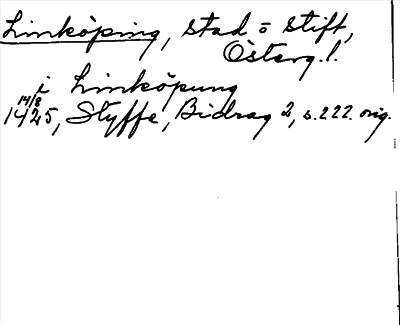 Linköping, stad o stift,
Österg. l.
i Linköpung
14/8
1425, Styffe, Bidrag 2, s. 222. orig.